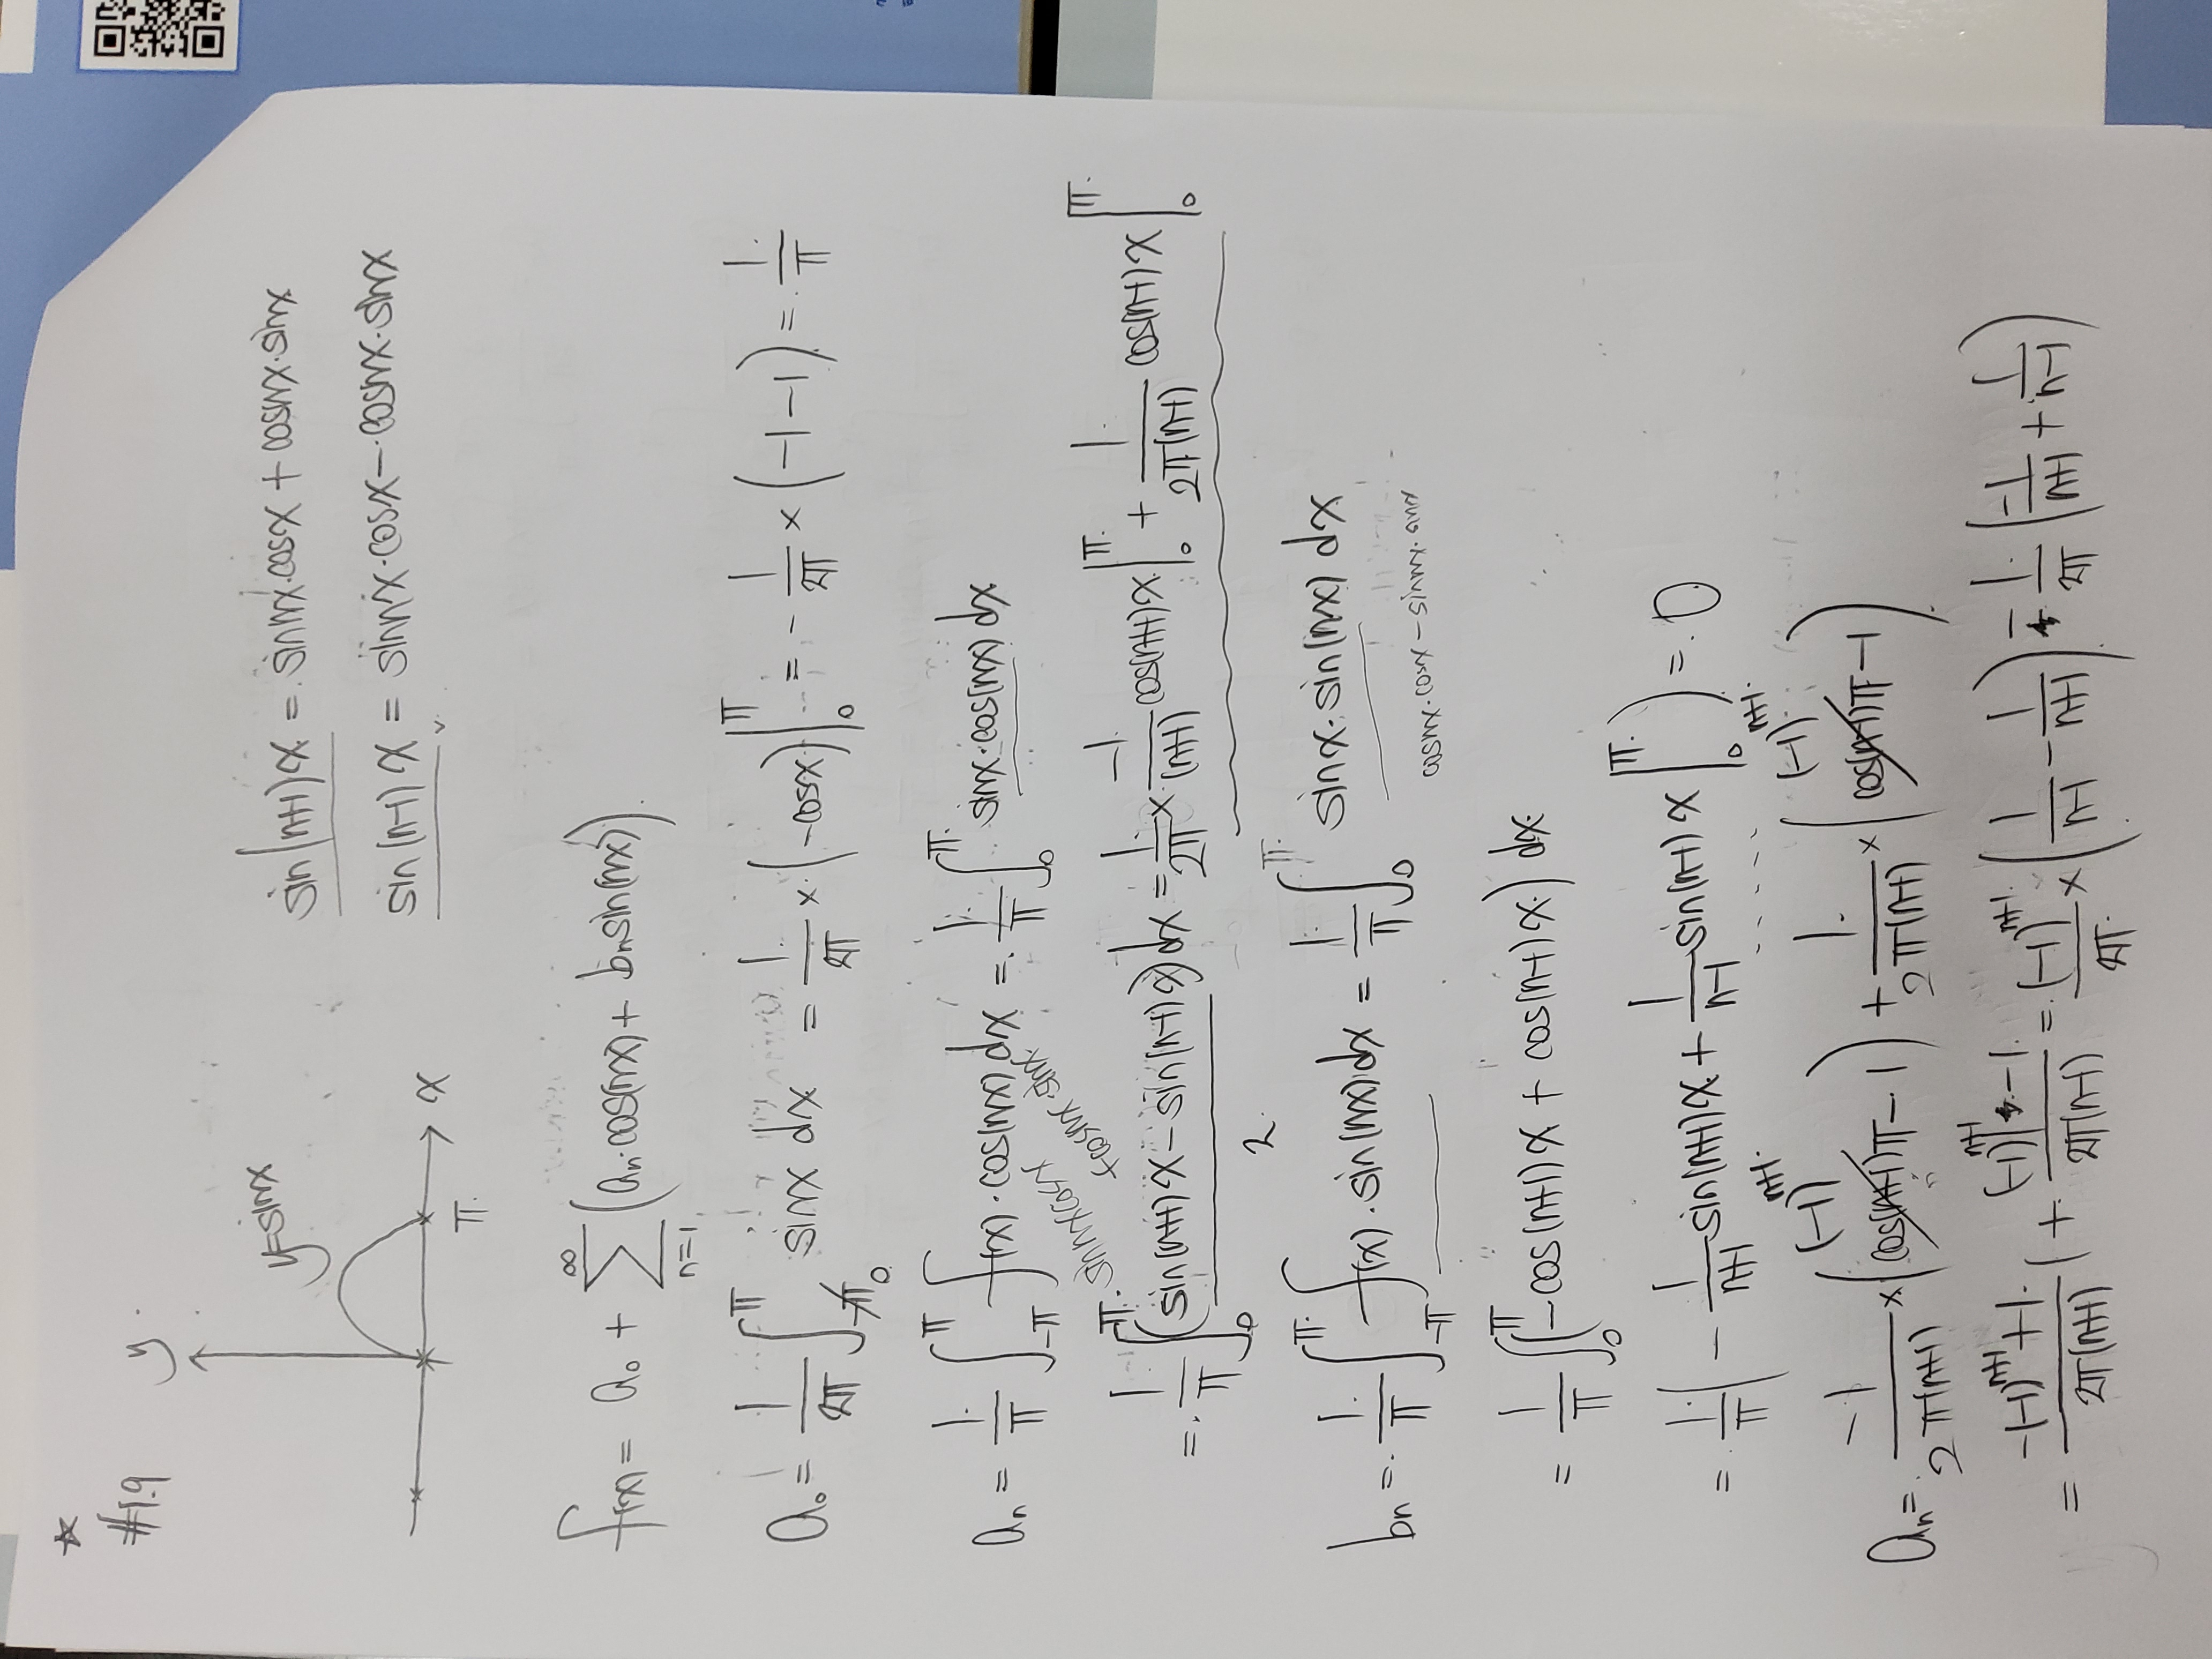 ☆
#1.9
y
y=sinx
x
π
sin(n+1)x = sinnx·cosx + cosnx·sinx
sin(n-1)x = sinnx·cosx - cosnx·sinx
f(x) = a₀ + ∑_{n=1}^{∞} (aₙ·cos(nx) + bₙsin(nx))
a₀ = 1/2π ∫_0^π sinx dx = 1/2π × (-cosx)|_0^π = - 1/2π × (-1-1) = 1/π
aₙ = 1/π ∫_{-π}^π f(x)·cos(nx)dx = 1/π ∫_0^π sinx·cos(nx)dx
sinnxcosx
+cosnx·sinx
= 1/π ∫_0^π (sin(n+1)x - sin(n-1)x)/2 dx = 1/2π × -1/(n+1) cos(n+1)x|_0^π + 1/2π(n-1) cos(n-1)x|_0^π
bₙ = 1/π ∫_{-π}^π f(x)·sin(nx)dx = 1/π ∫_0^π sinx·sin(nx) dx
cosnx·cosx - sinnx·sinx
= 1/π ∫_0^π (-cos(n+1)x + cos(n-1)x) dx
= 1/π (- 1/n+1 sin(n+1)x + 1/n-1 sin(n-1)x |_0^π) = 0
aₙ = -1/2π(n+1) × ((-1)^{n+1} -1) + 1/2π(n-1) × ((-1)^{n+1} -1)
= (-(-1)^{n+1}+1)/2π(n+1) + ((-1)^{n+1} -1)/2π(n-1) = (-1)^{n+1}/2π × (1/n-1 - 1/n+1) - 1/2π (-1/n+1 + 1/n-1)